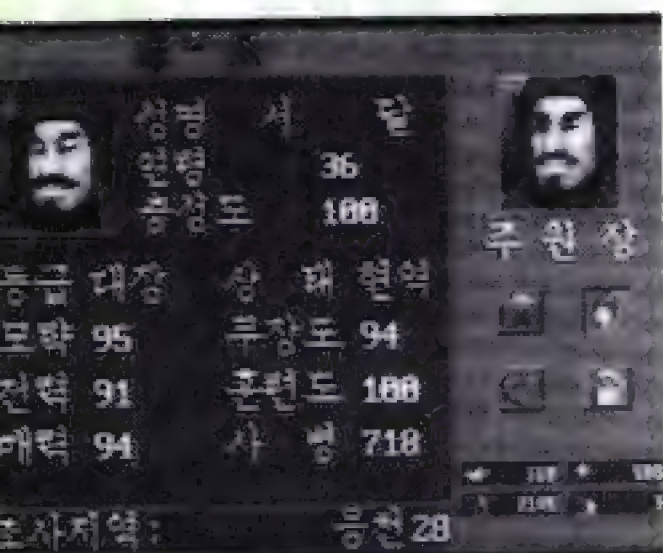 성명 서 달
연령 36
충성도 100
주 원 장
등급 대장 상 태 현역
모략 95 무장도 94
전력 91 훈련도 100
매력 94 사 병 718
조사지역: 응천28